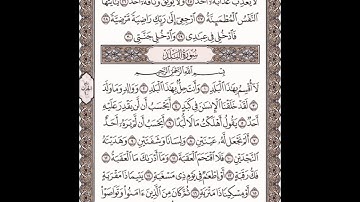 لَّا يُعَذِّبُ عَذَابَهُۥٓ أَحَدٌ ۝٢٥ وَلَا يُوثِقُ وَثَاقَهُۥٓ أَحَدٌ ۝٢٦ يَٰٓأَيَّتُهَا
ٱلنَّفْسُ ٱلْمُطْمَئِنَّةُ ۝٢٧ ٱرْجِعِىٓ إِلَىٰ رَبِّكِ رَاضِيَةً مَّرْضِيَّةً ۝٢٨
فَٱدْخُلِى فِى عِبَٰدِى ۝٢٩ وَٱدْخُلِى جَنَّتِى ۝٣٠
سُورَةُ البَلَدِ
بِسْمِ ٱللَّهِ ٱلرَّحْمَٰنِ ٱلرَّحِيمِ
لَآ أُقْسِمُ بِهَٰذَا ٱلْبَلَدِ ۝١ وَأَنتَ حِلٌّۢ بِهَٰذَا ٱلْبَلَدِ ۝٢ وَوَالِدٍ وَمَا وَلَدَ ۝٣
لَقَدْ خَلَقْنَا ٱلْإِنسَٰنَ فِى كَبَدٍ ۝٤ أَيَحْسَبُ أَن لَّن يَقْدِرَ عَلَيْهِ
أَحَدٌ ۝٥ يَقُولُ أَهْلَكْتُ مَالًا لُّبَدًا ۝٦ أَيَحْسَبُ أَن لَّمْ يَرَهُۥٓ أَحَدٌ ۝٧
أَلَمْ نَجْعَل لَّهُۥ عَيْنَيْنِ ۝٨ وَلِسَانًا وَشَفَتَيْنِ ۝٩ وَهَدَيْنَٰهُ
ٱلنَّجْدَيْنِ ۝١٠ فَلَا ٱقْتَحَمَ ٱلْعَقَبَةَ ۝١١ وَمَآ أَدْرَىٰكَ مَا ٱلْعَقَبَةُ ۝١٢
فَكُّ رَقَبَةٍ ۝١٣ أَوْ إِطْعَٰمٌ فِى يَوْمٍ ذِى مَسْغَبَةٍ ۝١٤ يَتِيمًا ذَا مَقْرَبَةٍ ۝١٥
أَوْ مِسْكِينًا ذَا مَتْرَبَةٍ ۝١٦ ثُمَّ كَانَ مِنَ ٱلَّذِينَ ءَامَنُوا۟ وَتَوَاصَوْا۟